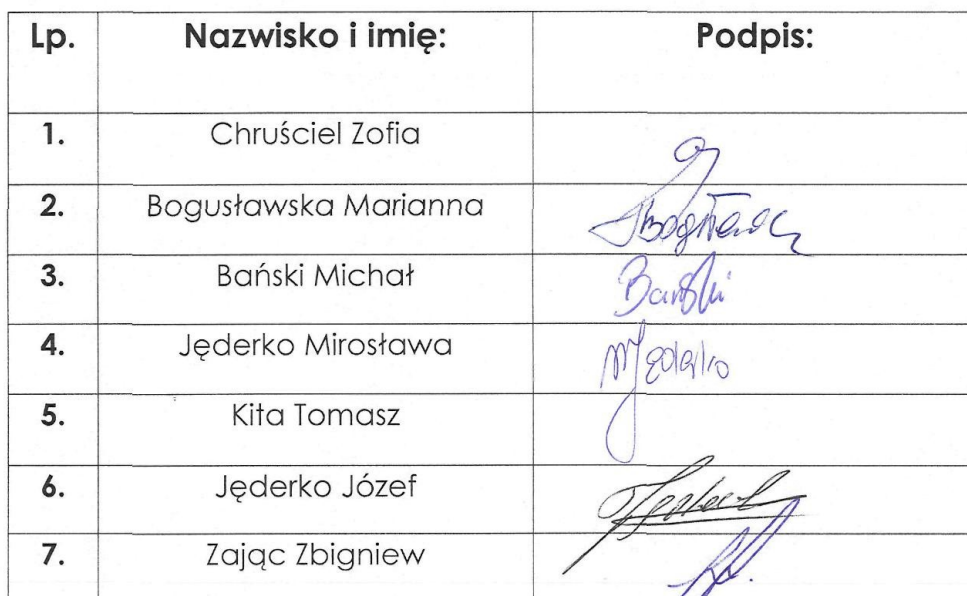 Lp. Nazwisko i imię: Podpis:
1. Chruściel Zofia
2. Bogusławska Marianna
3. Bański Michał Bański
4. Jęderko Mirosława MJęderko
5. Kita Tomasz
6. Jęderko Józef
7. Zając Zbigniew